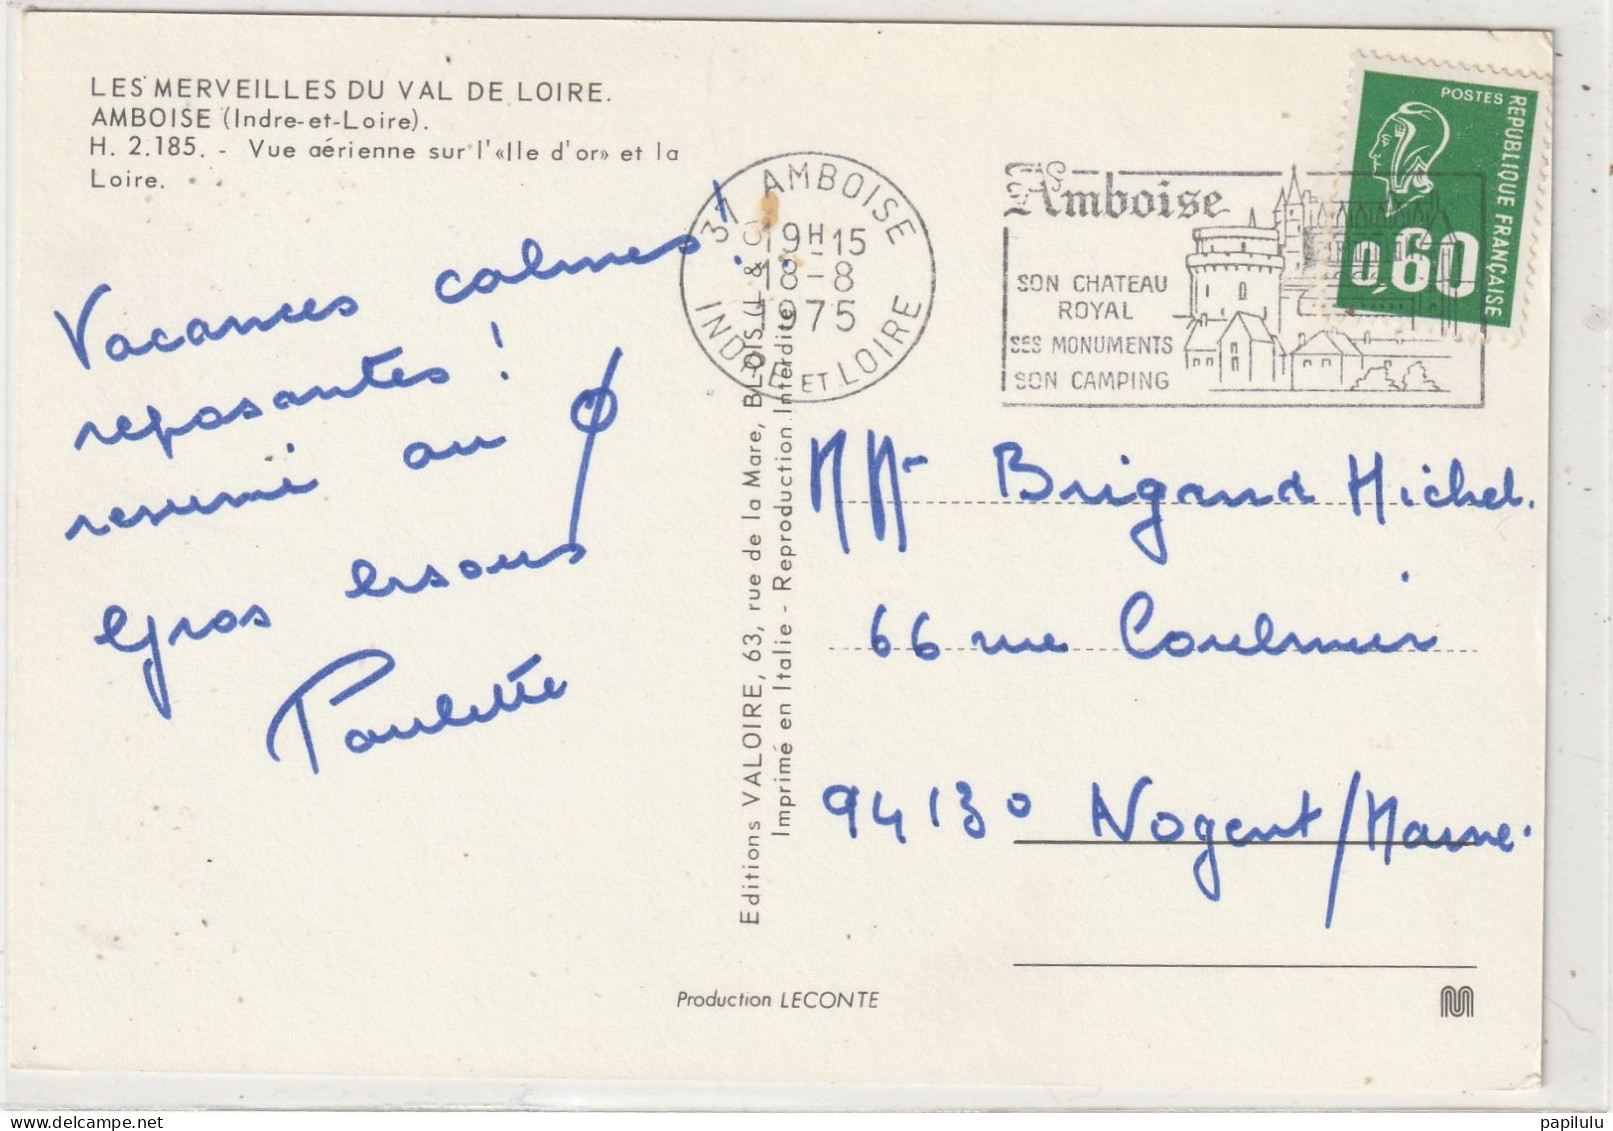 LES MERVEILLES DU VAL DE LOIRE.
AMBOISE (Indre-et-Loire).
H. 2.185. - Vue aérienne sur l'«Ile d'or» et la
Loire.
Vacances calmes!
reposantes !
resumé au
Gros
Paulette
37 AMBOISE
19H15
18-8
1975
INDRE ET LOIRE
Amboise
SON CHATEAU
ROYAL
SES MONUMENTS
SON CAMPING
POSTES
REPUBLIQUE FRANÇAISE
0,60
Editions VALOIRE, 63, rue de la Mare, BLOIS (L & C)
Imprimé en Italie - Reproduction Interdite
Brigand Michel.
66 rue
94130 Nogent/Marne.
Production LECONTE
papilulu